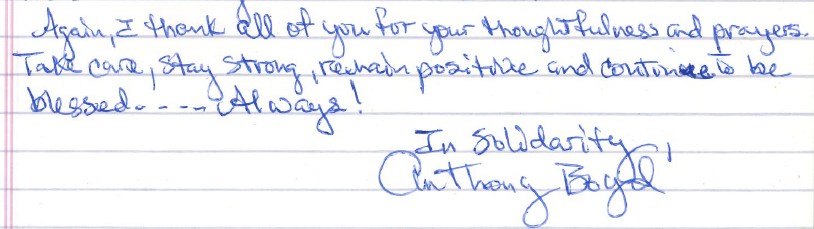 Again, I thank all of you for your thoughtfulness and prayers.
Take care, stay strong, remain positive and continue to be
blessed - - - - Always!
In Solidarity,
Anthony Boyd